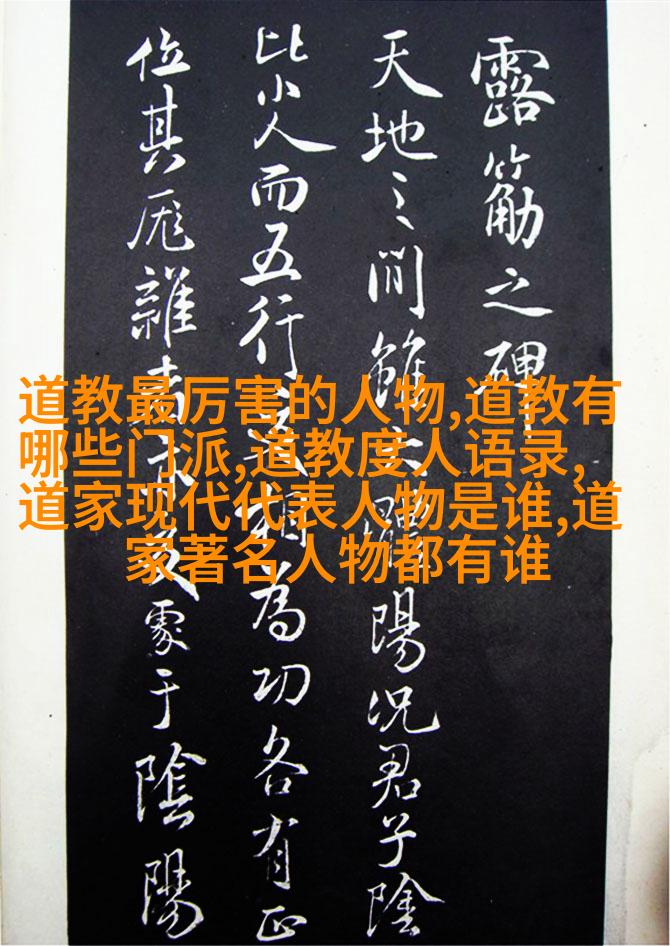 露筋之碑
天地之間雖陽況君子陰
比小人而五行相為功各有正
位其厖雜亦處于陰陽
道教最厉害的人物,道教有
哪些门派,道教度人语录,
道家现代代表人物是谁,道
家著名人物都有谁